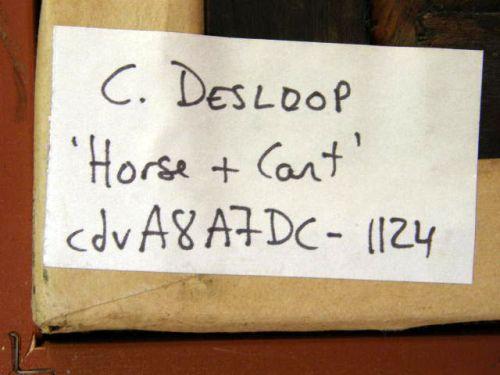 C. DESLOOP
'Horse + Cart'
cdvA8A7DC-1124